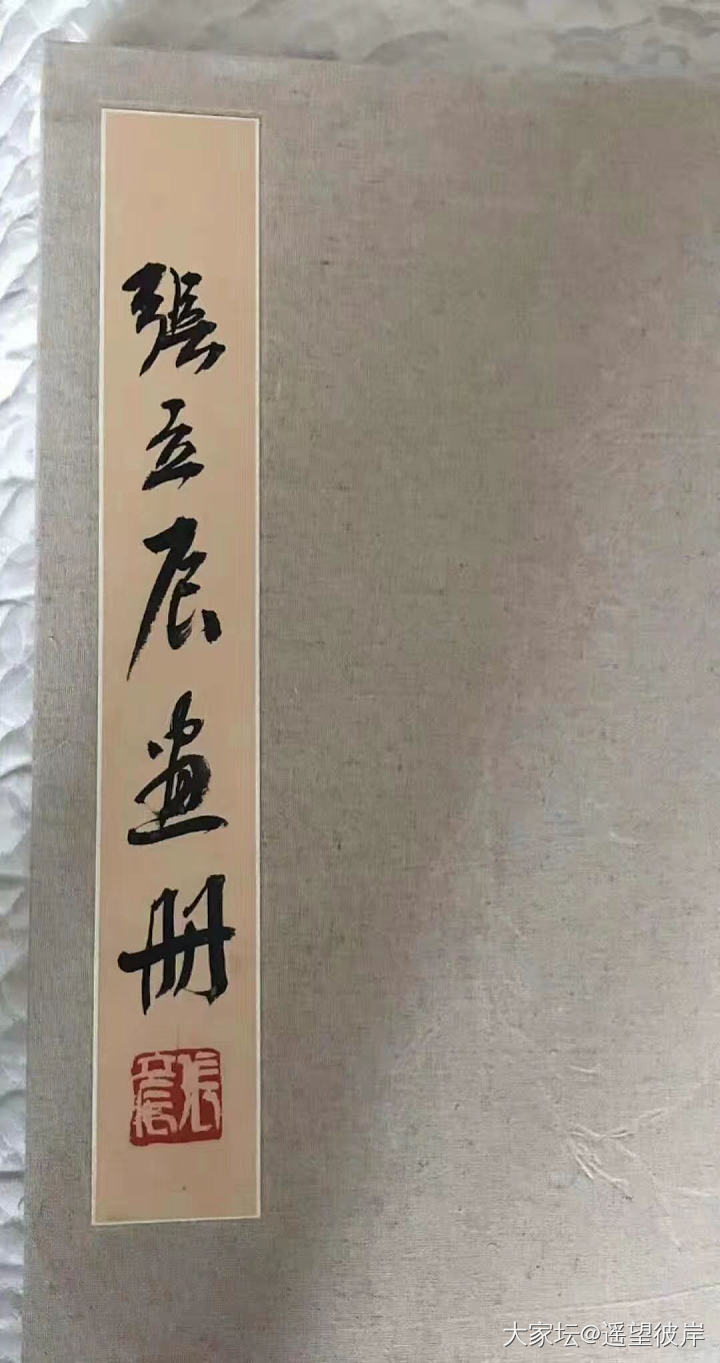 張立辰畫册
張立辰
大家坛@遥望彼岸